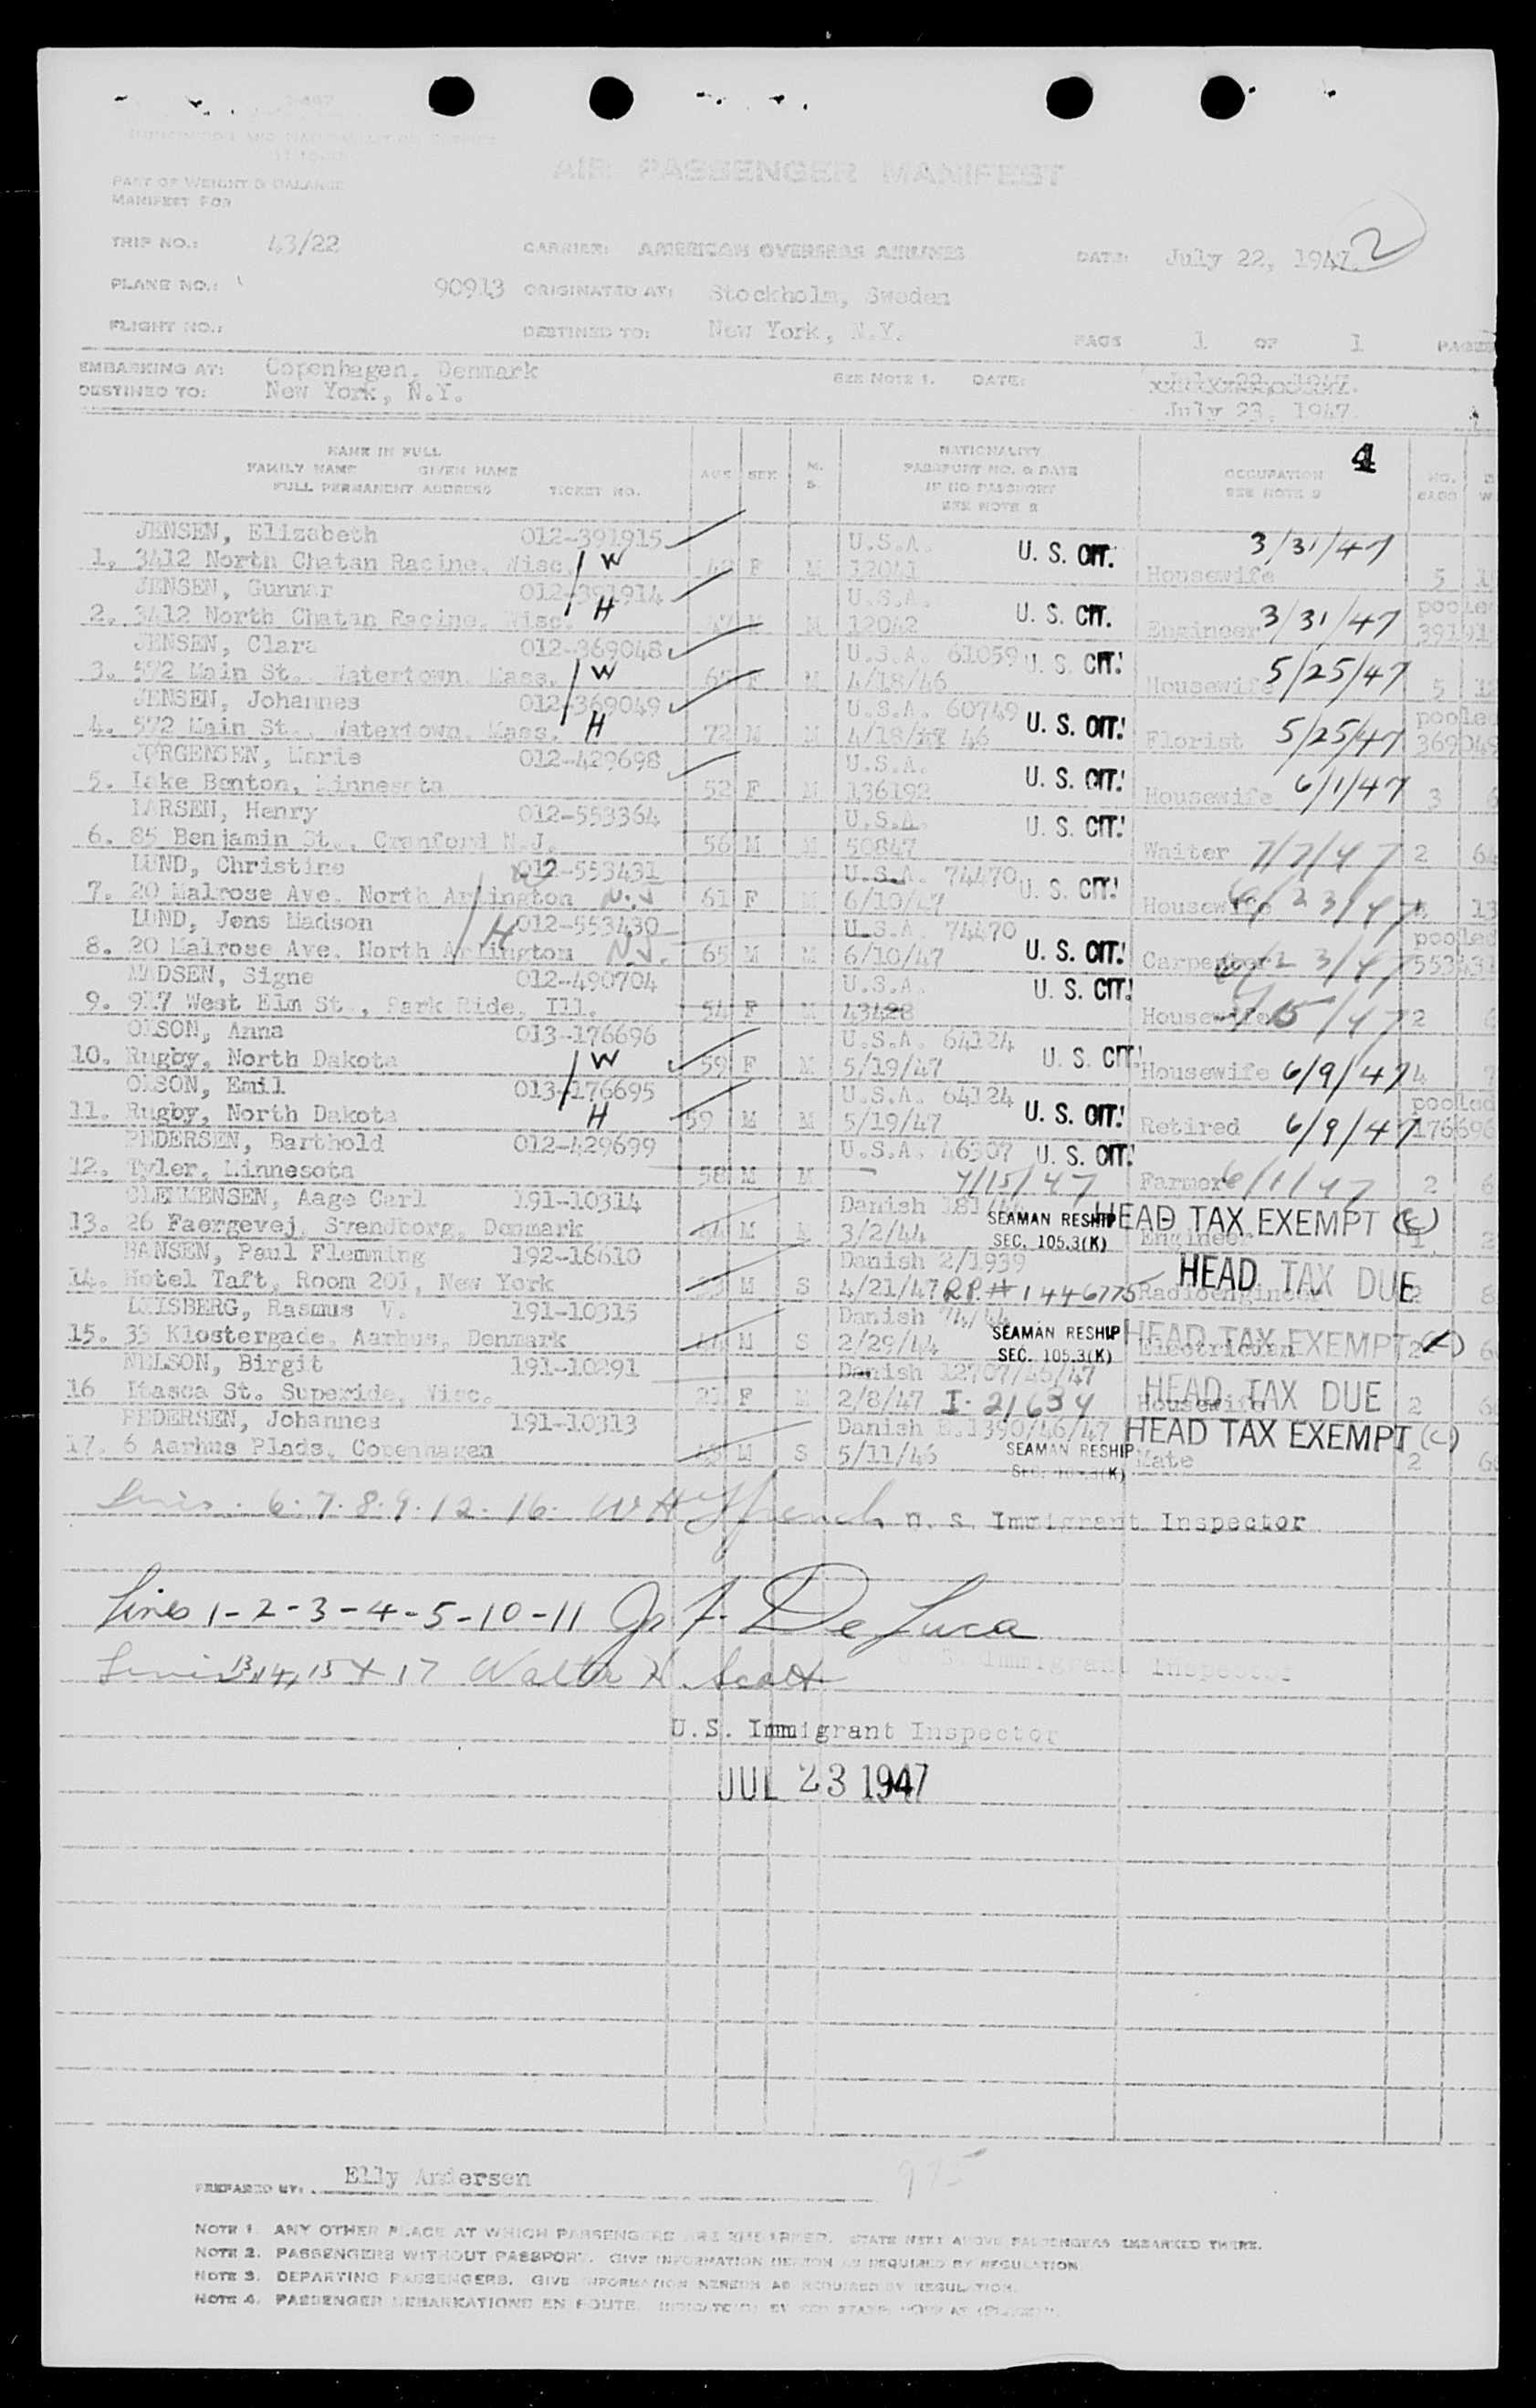 AIR PASSENGER MANIFEST
PART OF WEIGHT & BALANCE
MANIFEST FOR
TRIP NO.: 43/22 CARRIER: AMERICAN OVERSEAS AIRLINES DATE: July 22, 1947. 2
PLANE NO.: 90913 ORIGINATED AT: Stockholm, Sweden
FLIGHT NO.: DESTINED TO: New York, N.Y. PAGE 1 OF 1 PAGES
EMBARKING AT: Copenhagen, Denmark SEE NOTE 1. DATE:
DESTINED TO: New York, N.Y. July 23, 1947.
4
NAME IN FULL NATIONALITY
FAMILY NAME GIVEN NAME AGE SEX M. PASSPORT NO. & DATE OCCUPATION NO.
FULL PERMANENT ADDRESS TICKET NO. S. IF NO PASSPORT SEE NOTE 2 BAGS W
SEE NOTE 2
JENSEN, Elizabeth 012-391915 U.S.A. U. S. CIT. 3/31/47
1. 3412 North Chatan Racine, Wisc. W F M 12041 Housewife 5
JENSEN, Gunnar 012-391914 U.S.A. pooled
2. 3412 North Chatan Racine, Wisc. H 47 M M 12042 U. S. CIT. Engineer 3/31/47
JENSEN, Clara 012-369048 U.S.A. 61059 U. S. CIT.
3. 572 Main St., Watertown, Mass. W F M 4/18/46 Housewife 5/25/47 5
JENSEN, Johannes 012-369049 U.S.A. 60749 pooled
4. 572 Main St., Watertown, Mass. H 72 M M 4/18/ 46 U. S. CIT. Florist 5/25/47 369049
JORGENSEN, Marie 012-429698 U.S.A.
5. Lake Benton, Minnesota 52 F M 136192 U. S. CIT. Housewife 6/1/47 3 6
LARSEN, Henry 012-553364 U.S.A. U. S. CIT.
6. 85 Benjamin St., Cranford N.J. 56 M M 50847 Waiter 7/7/47 2 64
LUND, Christine 012-553431 U.S.A. 74470 U. S. CIT.
7. 20 Malrose Ave. North Arlington N.J. 61 F M 6/10/47 Housewife 6/23/47 13
LUND, Jens Madson H 012-553430 U.S.A. 74470 pooled
8. 20 Malrose Ave. North Arlington N.J. 65 M M 6/10/47 U. S. CIT. Carpenter 6/23/47 553431
MADSEN, Signe 012-490704 U.S.A. U. S. CIT.
9. 917 West Elm St., Park Ride, Ill. 54 F M 43428 Housewife 2 6
OLSON, Anna 013-176696 U.S.A. 64124
10. Rugby, North Dakota W 59 F M 5/19/47 U. S. CIT. Housewife 6/9/47 4 7
OLSON, Emil 013-176695 U.S.A. 64124 pooled
11. Rugby, North Dakota H 59 M M 5/19/47 U. S. CIT. Retired 6/9/47 176696
PEDERSEN, Barthold 012-429699 U.S.A. 46307 U. S. CIT.
12. Tyler, Minnesota 58 M M 4/15/47 Farmer 6/1/47 2 6
CLEMMENSEN, Aage Carl 191-10314 Danish SEAMAN RESHIP HEAD TAX EXEMPT (C)
13. 26 Faergevej, Svendborg, Denmark 44 M M 3/2/44 SEC. 105.3(K) Engineer 1 2
HANSEN, Paul Flemming 192-16610 Danish 2/1939 HEAD TAX DUE
14. Hotel Taft, Room 201, New York M S 4/21/47 RP # 1446775 Radioengineer 2 8
LEISBERG, Rasmus V. 191-10315 Danish 74/44 SEAMAN RESHIP HEAD TAX EXEMPT (C)
15. 33 Klostergade, Aarhus, Denmark 44 M S 2/29/44 SEC. 105.3(K) Electrician 2
NELSON, Birgit 191-10291 Danish 12707/46/47 HEAD TAX DUE
16 Itasca St. Superide, Wisc. F M 2/8/47 I-21634 Housewife 2
PEDERSEN, Johannes 191-10313 Danish 1390/46/47 HEAD TAX EXEMPT (C)
17. 6 Aarhus Plads, Copenhagen M S 5/11/46 SEAMAN RESHIP SEC. 105.3(K) Mate 2
Lines. 6. 7. 8. 9. 12. 16. W H French U. S. Immigrant Inspector
Lines 1-2-3-4-5-10-11 De Luca
U. S. Immigrant Inspector
Lines 13, 14, 15 & 17 Walter H Scott
U.S. Immigrant Inspector
JUL 23 1947
PREPARED BY: Elly Andersen
NOTE 1. ANY OTHER PLACE AT WHICH PASSENGERS ARE EMBARKED. STATE NEXT ABOVE PASSENGERS EMBARKED THERE.
NOTE 2. PASSENGERS WITHOUT PASSPORT. GIVE INFORMATION HEREON AS REQUIRED BY REGULATION
NOTE 3. DEPARTING PASSENGERS. GIVE INFORMATION HEREON AS REQUIRED BY REGULATION.
NOTE 4. PASSENGER DEBARKATIONS EN ROUTE.